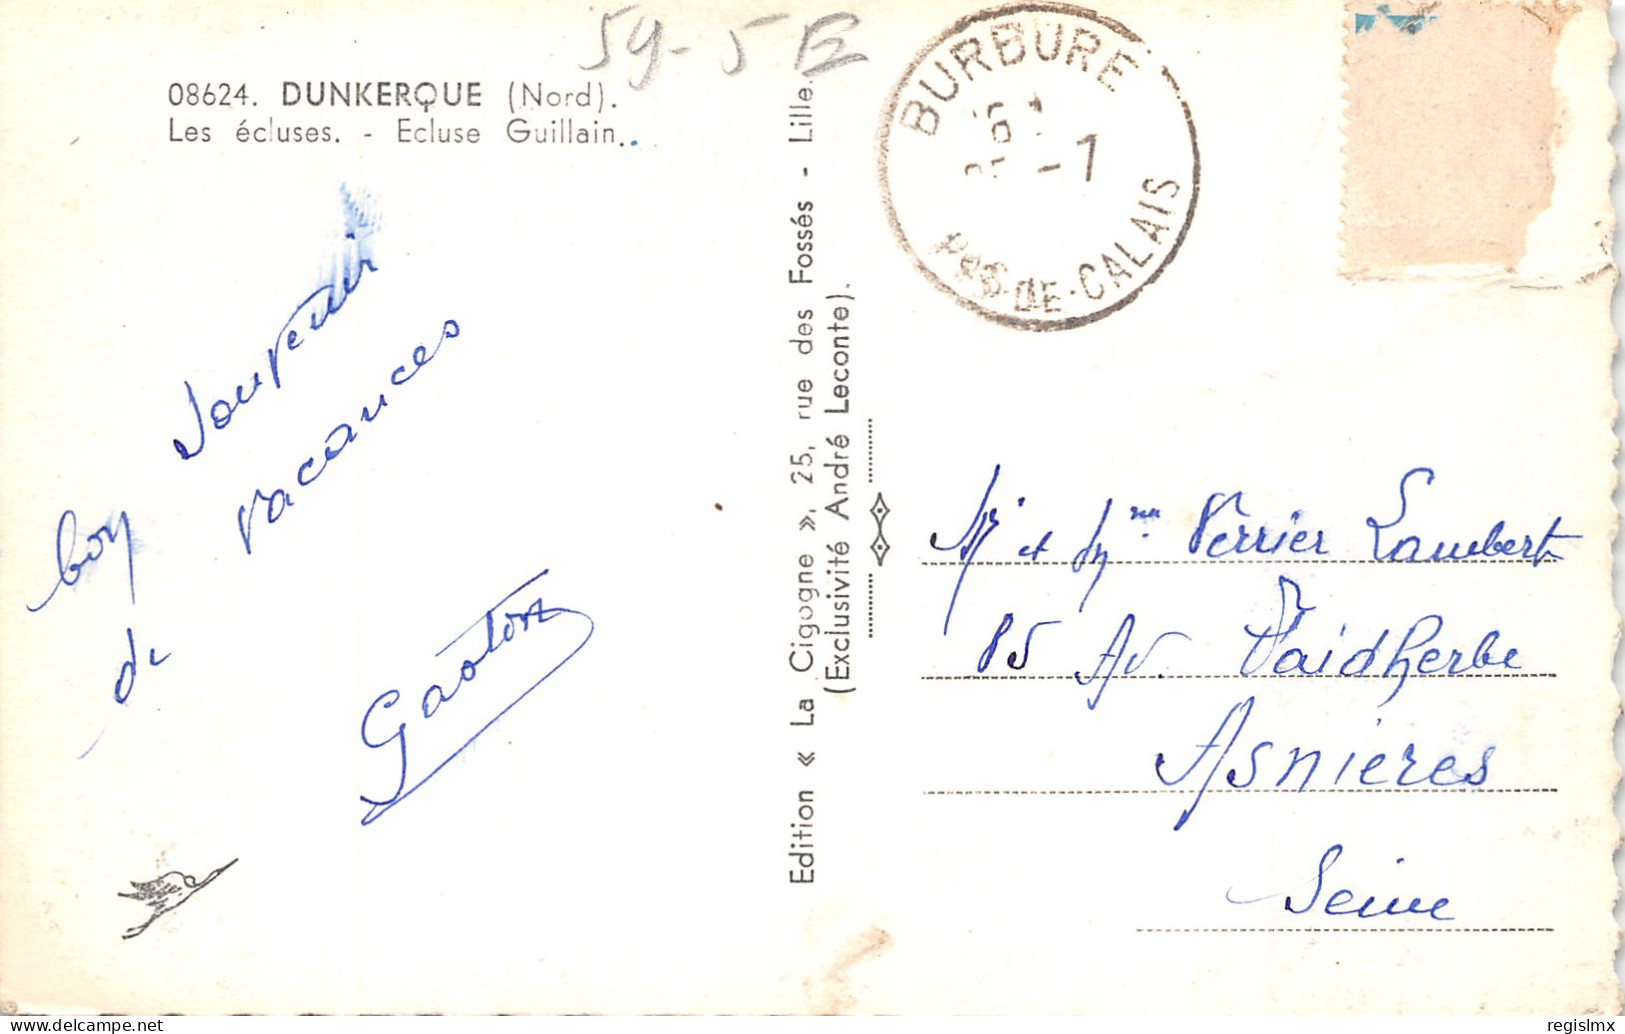 59-5
08624. DUNKERQUE (Nord).
Les écluses. - Ecluse Guillain.
bon souvenir
de vacances
Gaston
Edition « La Cigogne », 25, rue des Fossés - Lille.
(Exclusivité André Leconte).
BURBURE
-7
PAS-DE-CALAIS
Mr et Mme Verrier Lambert
85 Av. Faidherbe
Asnieres
Seine
delcampe.net
regislmx